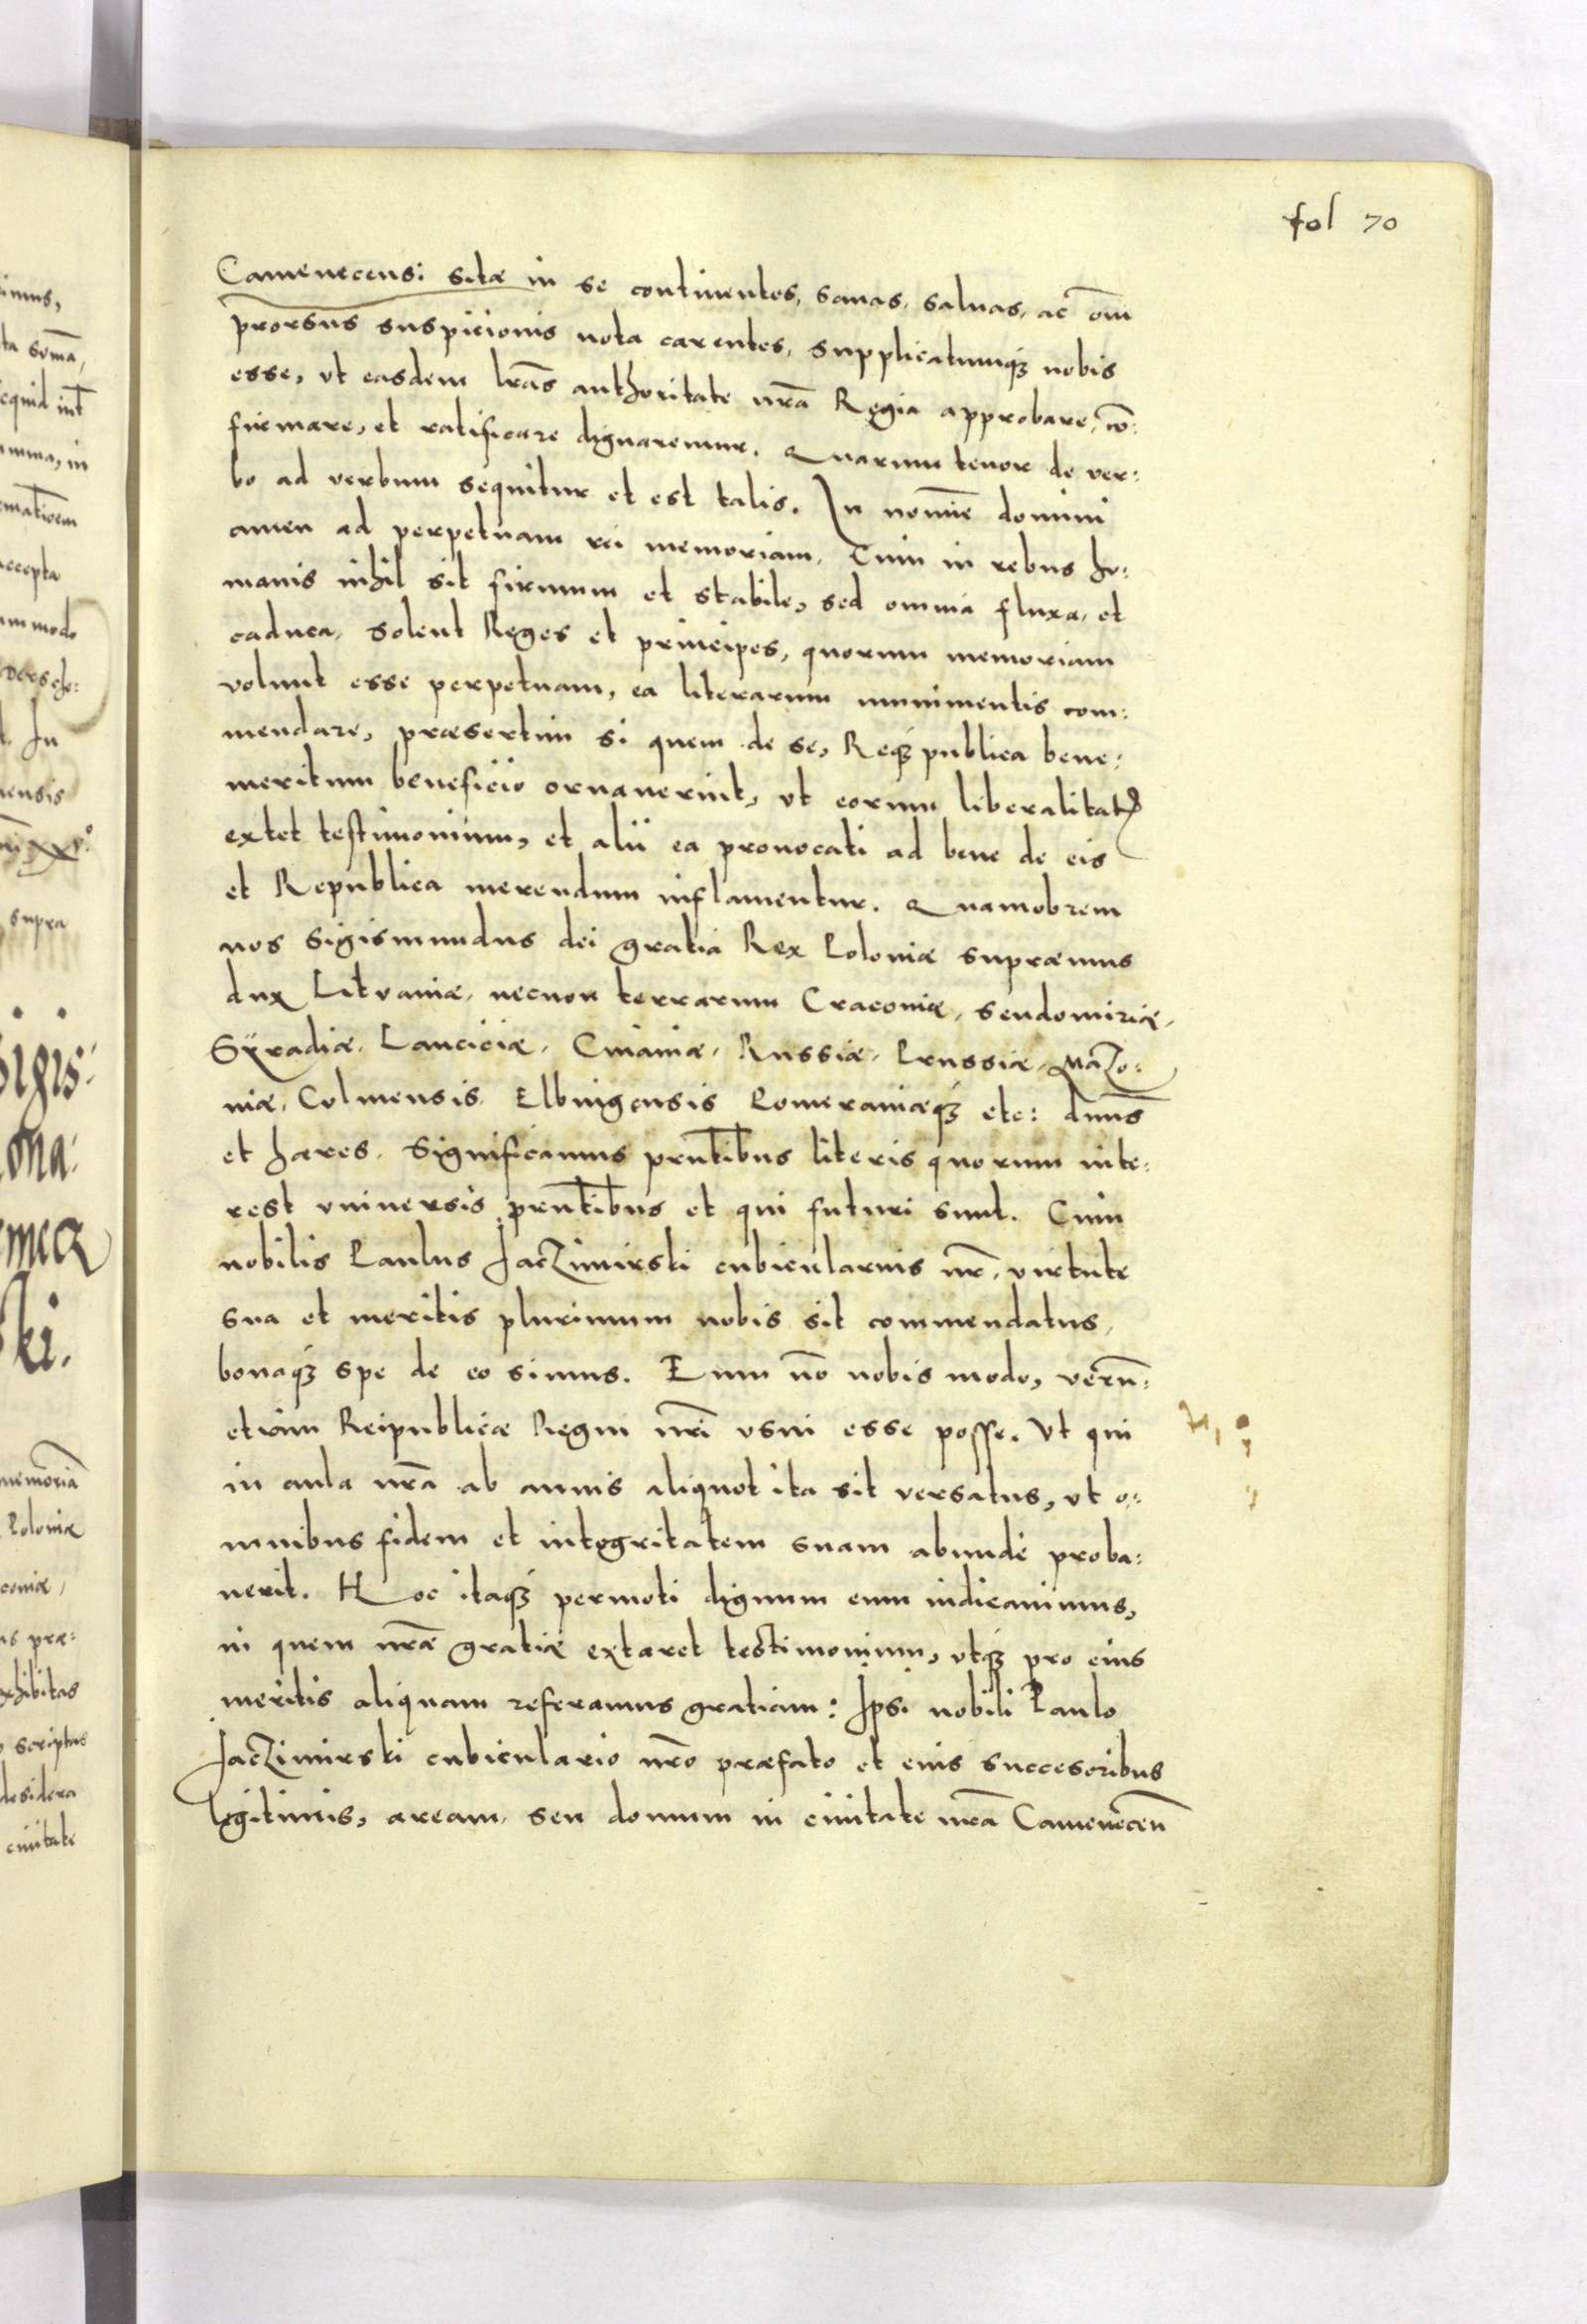 fol 70
Camenecensi sitæ in se continentes, sanas, saluas, ac om̄
prorsus suspicionis nota carentes, supplicatumqȝ nobis
esse, vt easdem lr̄as authoritate nr̄a Regia approbare, cō:
firmare, et ratificare dignaremur. Quarum tenor de ver:
bo ad verbum sequitur et est talis. In nomīe domini
amen ad perpetuam rei memoriam. Cum in rebus hu:
manis nihil sit firmum et stabile, sed omnia fluxa, et
caduca, solent Reges et principes, quorum memoriam
volunt esse perpetuam, ea literarum munimentis com:
mendare, præsertim si quem de se, Reqȝ publica bene:
meritum beneficio ornauerint, vt eorum liberalitatis
extet testimonium, et alii ea prouocati ad bene de eis
et Republica merendum inflamentur. Quamobrem
nos Sigismundus dei gratia Rex Poloniæ supræmus
dux Litvaniæ, necnon terrarum Cracouiæ, Sendomiriæ,
Syradiæ, Lanciciæ, Cuiauiæ, Russiæ, Prussiæ, Mazo:
uiæ, Colmensis, Elbingensis Pomeraniæqȝ etc: dnn̄s
et hæres. Significamus prn̄tibus literis quorum inte:
rest vniuersis prn̄tibus et qui futuri sunt. Cum
nobilis Paulus Jaczimirski cubicularius nr̄, virtute
sua et meritis plurimum nobis sit commendatus,
bonaqȝ spe de eo simus. Eum nō nobis modo, verū:
etiam Reipublicæ Regni nr̄i vsui esse posse. Vt qui
in aula nr̄a ab annis aliquot ita sit versatus, vt o:
mnibus fidem et integritatem suam abunde proba:
uerit. Hoc itaqȝ permoti dignum eum iudicauimus,
in quem nr̄æ gratiæ extaret testimonium, vtqȝ pro eius
meritis aliquam referamus gratiam: Ipsi nobili Paulo
Jaczimirski cubiculario nr̄o præfato et eius succesoribus
legitimis, aream, seu domum in ciuitate nr̄a Camenecen̄